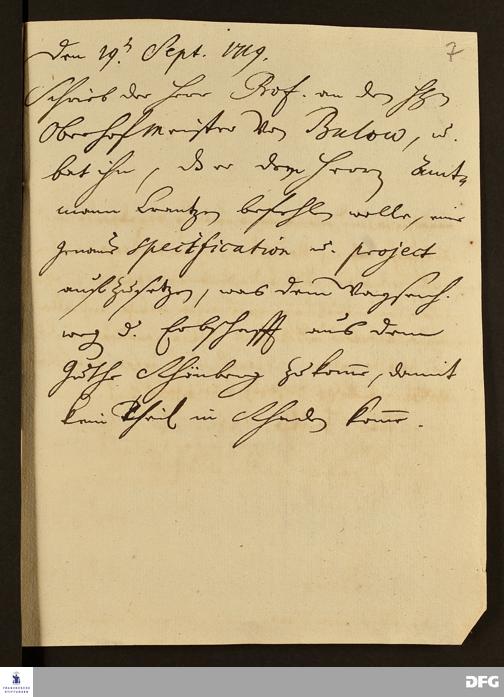 7
Den 19ᵗ Sept. 1719.
Schrieb der Herr Prof. an den Hℓn
Oberhofmeister von Bulow, u.
bat ihn, daß er dem Herrn Amt-
mann Crantzen befehlen wolle, eine
genaue specification u. project
aufzusetzen, was dem
weg d. Erbschafft aus dem
Guthe Schönberg zukom̄e, damit
kein Theil in Schaden kom̄e.
FRANCKESCHE
STIFTUNGEN
DFG